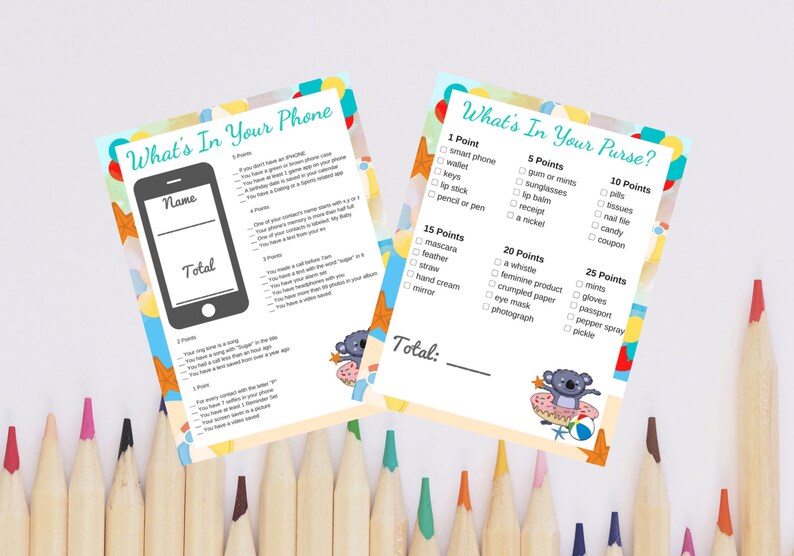 What's In Your Phone
Name
Total
5 Points
__ If you don't have an IPHONE
__ You have a green or brown phone case
__ You have at least 1 game app on your phone
__ A birthday date is saved in your calendar
__ You have a Dating or a Sports related app
4 Points
__ One of your contact's name starts with x,y or z
__ Your phone's memory is more than half full
__ One of your contacts is labeled: My Baby
__ You have a text from your ex
3 Points
__ You made a call before 7am
__ You have a text with the word "sugar" in it
__ You have your alarm set
__ You have headphones with you
__ You have more than 99 photos in your album
__ You have a video saved
2 Points
__ Your ring tone is a song
__ You have a song with "Sugar" in the title
__ You had a call less than an hour ago
__ You have a text saved from over a year ago
1 Point
__ For every contact with the letter "P"
__ You have 7 selfies in your phone
__ You have at least 1 Reminder Set
__ Your screen saver is a picture
__ You have a video saved
What's In Your Purse?
1 Point
smart phone
wallet
keys
lip stick
pencil or pen
5 Points
gum or mints
sunglasses
lip balm
receipt
a nickel
10 Points
pills
tissues
nail file
candy
coupon
15 Points
mascara
feather
straw
hand cream
mirror
20 Points
a whistle
feminine product
crumpled paper
eye mask
photograph
25 Points
mints
gloves
passport
pepper spray
pickle
Total: ____